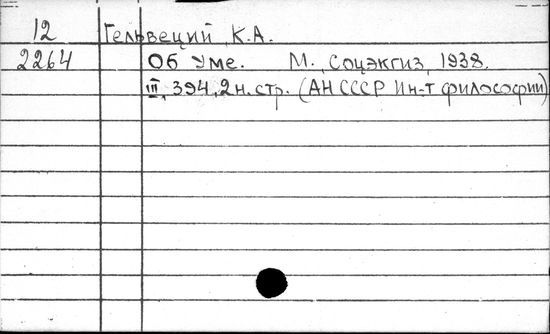 12 Гельвеций, К.А.
2264 Об Уме. М., Соцэкгиз, 1938.
III, 394, 2 н. стр. (АН СССР Ин-т философии)